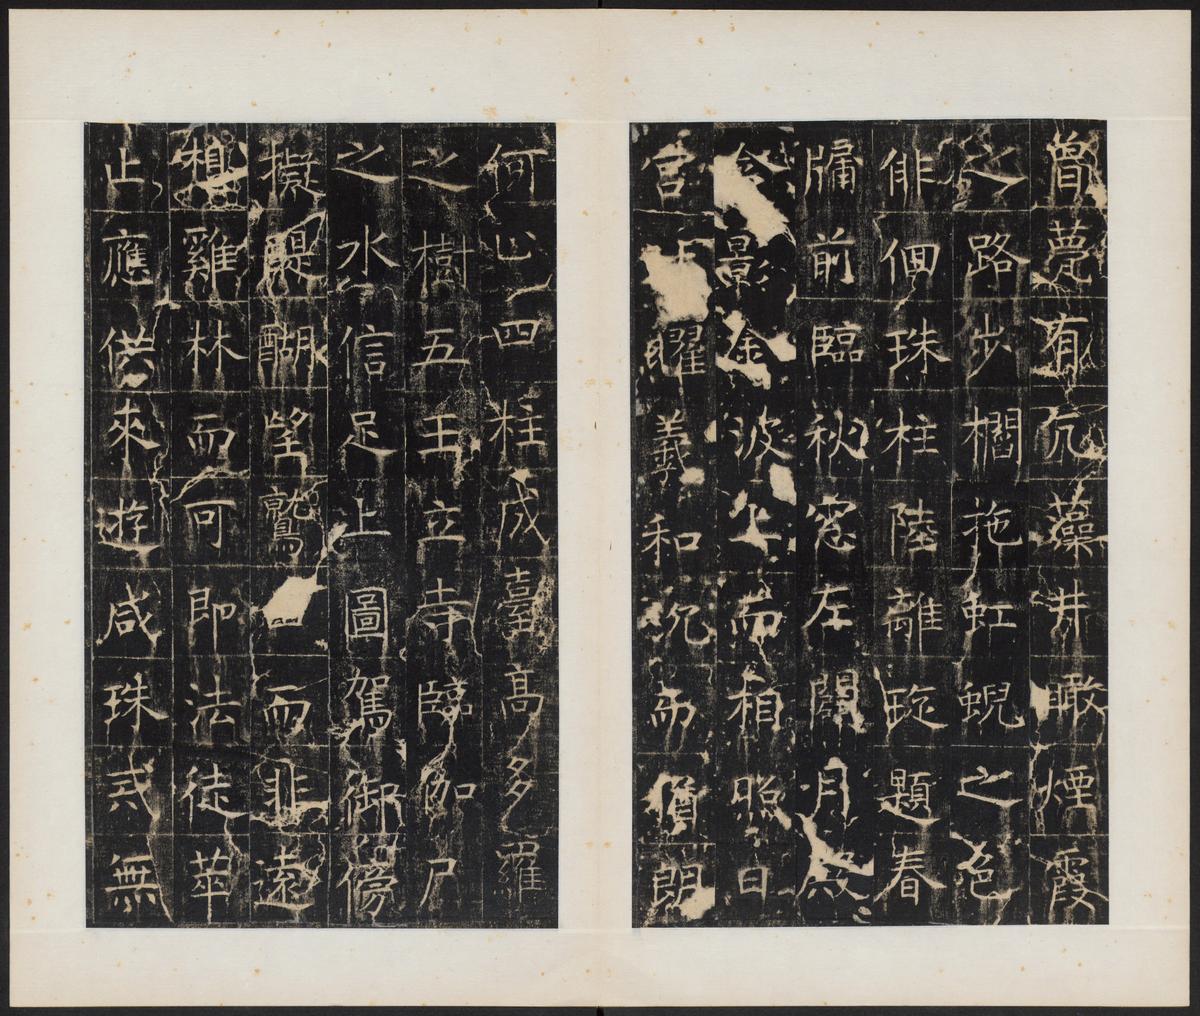 曾甍有亢藻井瞰煙霞
之路步櫩拖虹蜺之色
俳佪珠柱陸離跨題春
牖前臨秋窓左闢月殿
含影金波上而相照日
宮下曜羲和沉而朗
何止四柱成臺高多羅
之樹五王立寺臨伽尸
之水信足上圖駕御傍
擬醍醐望鷲而非遠
想雞林而可即法徒萃
止應供來遊咸珠式無